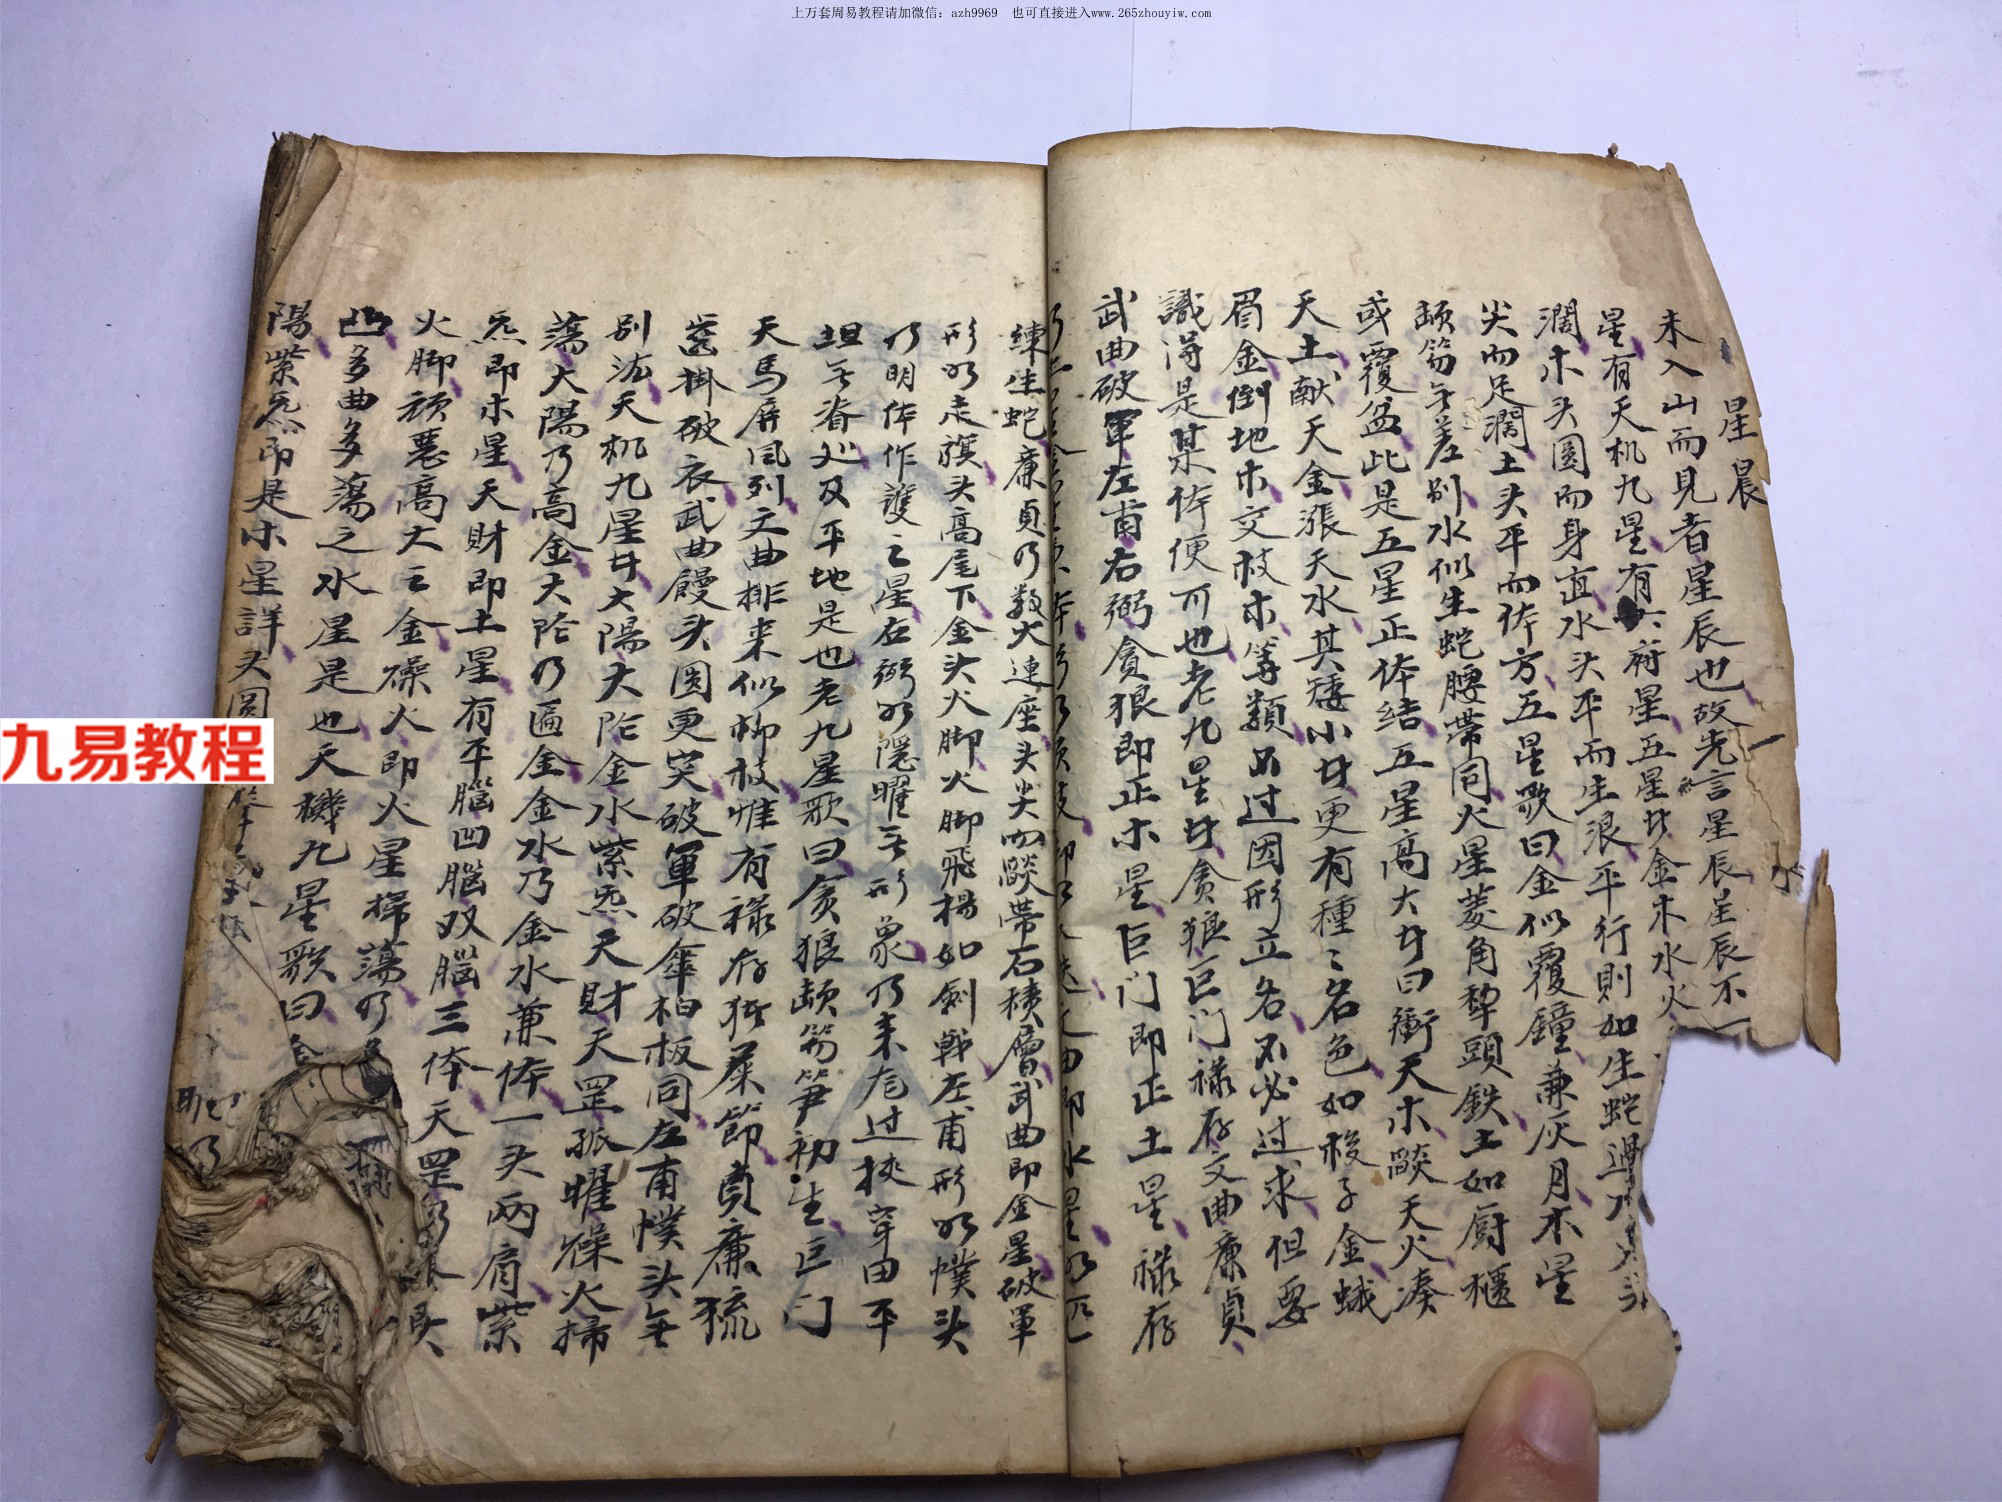 上万套周易教程请加微信: azh9969 也可直接进入www.265zhouyiw.com
九易教程
星晨
未入山而見者星辰也故先言星辰星辰不一
星有天机九星有六府星五星廿金木水火
濶木头圆而身直水头平而生浪平行則如生蛇過水
尖而足濶土头平而体方五星歌曰金似覆鐘兼灰月木星
頓笏无差别水似生蛇腰帶同火星菱角犂頭鉄土如厨櫃
或覆盆此是五星正体结五星高大廿曰衝天木燄天火凑
天土献天金漲天水其矮小廿更有種〻名色如梭子金蛾
眉金倒地木交枝木等類不过因形立名不必过求但要
識得是某体便可也老九星廿贪狼巨门禄存文曲廉貞
武曲破軍左甫右弼貪狼即正木星巨门即正土星禄存
練生蛇廉貞乃数火連座头尖如燄帶石積層武曲即金星破軍
形如走旗头高尾下金头火脚火脚飛楊如劍戟左甫形如幞头
乃明体作護之星右弼如隱曜无形象乃来尨过挾穿田平
坦无脊处及平地是也老九星歌曰贪狼頓笏笋初生巨门
天馬屏風列文曲排来似柳枝惟有禄存猪屎節貞廉猇
齒掛破衣武曲饅头圆更突破軍破傘柏板同左甫幞头无
别法天机九星廿太陽太阴金水紫炁天財天罡孤曜燥火掃
蕩太陽乃高金太阴乃匾金金水乃金水兼体一头两肩紫
炁即木星天財即土星有平腦凹腦双腦三体天罡
火脚頑惡高大之金燥火即火星掃蕩乃
多曲多蕩之水星是也天機九星歌曰
陽紫炁即是木星詳头圆